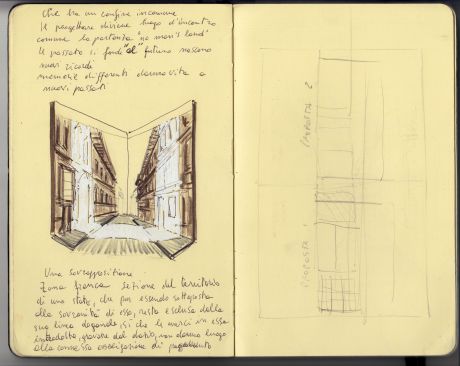 che ha un confine in comune
Il progettare diviene luogo d'incontro
comune la partenza "no man's land"
Il passato si fonde "al" futuro nascono
nuovi ricordi
memorie differenti danno vita a
nuovi passati
Una sovrapposizione
Zona franca sezione del territorio
di uno stato, che pur essendo sottoposta
alla sovranità di esso, resta esclusa dalla
sua linea doganale, sì che le merci in essa
introdotte, gravate del dazio, non danno luogo
alla connessa obbligazione di pagamento
PROPOSTA 2
PROPOSTA 1